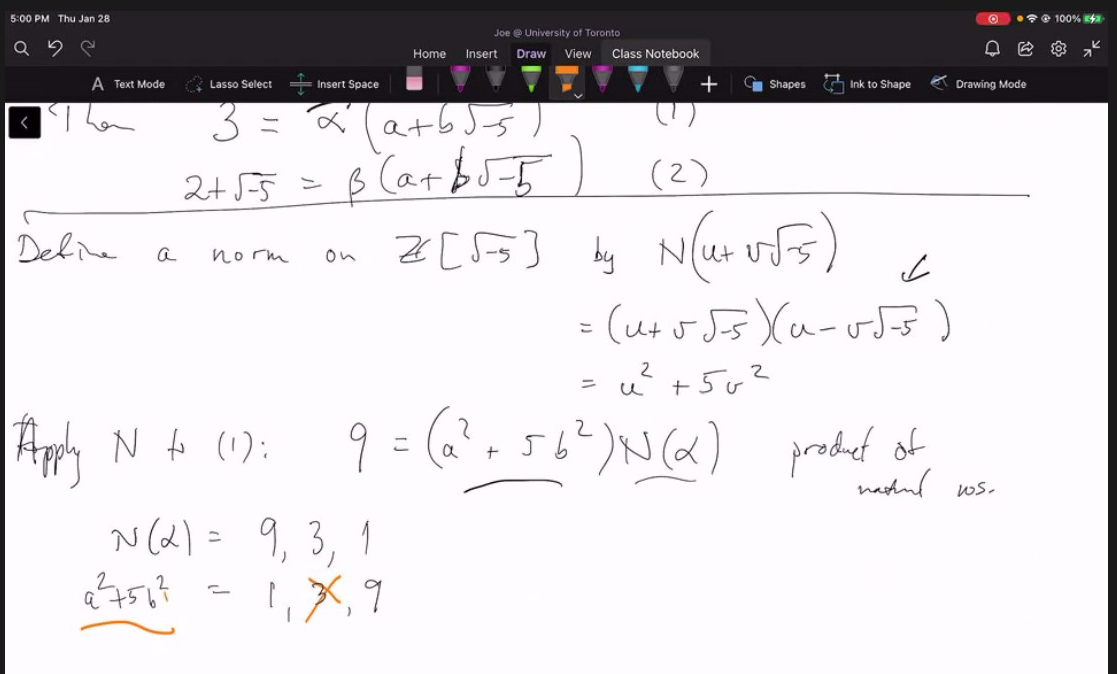 5:00 PM Thu Jan 28
100%
Joe @ University of Toronto
Home Insert Draw View Class Notebook
Text Mode Lasso Select Insert Space Shapes Ink to Shape Drawing Mode
Then 3 = α(a+b√-5) (1)
2+√-5 = β(a+b√-5) (2)
Define a norm on Z[√-5] by N(u+v√-5)
= (u+v√-5)(u-v√-5)
= u² + 5v²
Apply N to (1): 9 = (a² + 5b²)N(α) product of
natural nos.
N(α) = 9, 3, 1
a²+5b² = 1, 3, 9